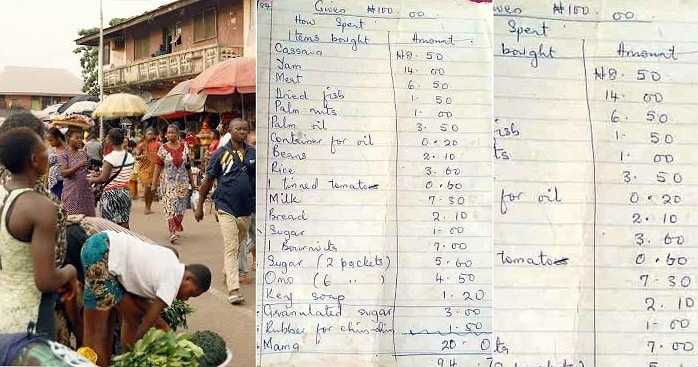 Given ₦100. 00
How Spent
Items bought Amount
Cassava ₦8. 50
Yam 14. 00
Meat 6. 50
Dried fish 1. 50
Palm nuts 1. 00
Palm oil 3. 50
Container for oil 0. 20
Beans 2. 10
Rice 3. 60
1 tinned tomatoes 0. 60
Milk 7. 30
Bread 2. 10
Sugar 1. 00
1 Bournvita 7. 00
Sugar (2 packets) 5. 60
Omo (6 " ) 4. 50
Key soap 1. 20
Granulated sugar 3. 00
Rubber for chin-chin 1. 50
Mama 20. 0
94. 7
₦100. 00
Spent
bought Amount
₦8. 50
14. 00
6. 50
ish 1. 50
ts 1. 00
3. 50
for oil 0. 20
2. 10
3. 60
tomatoes 0. 60
7. 30
2. 10
1. 00
ts 7. 00